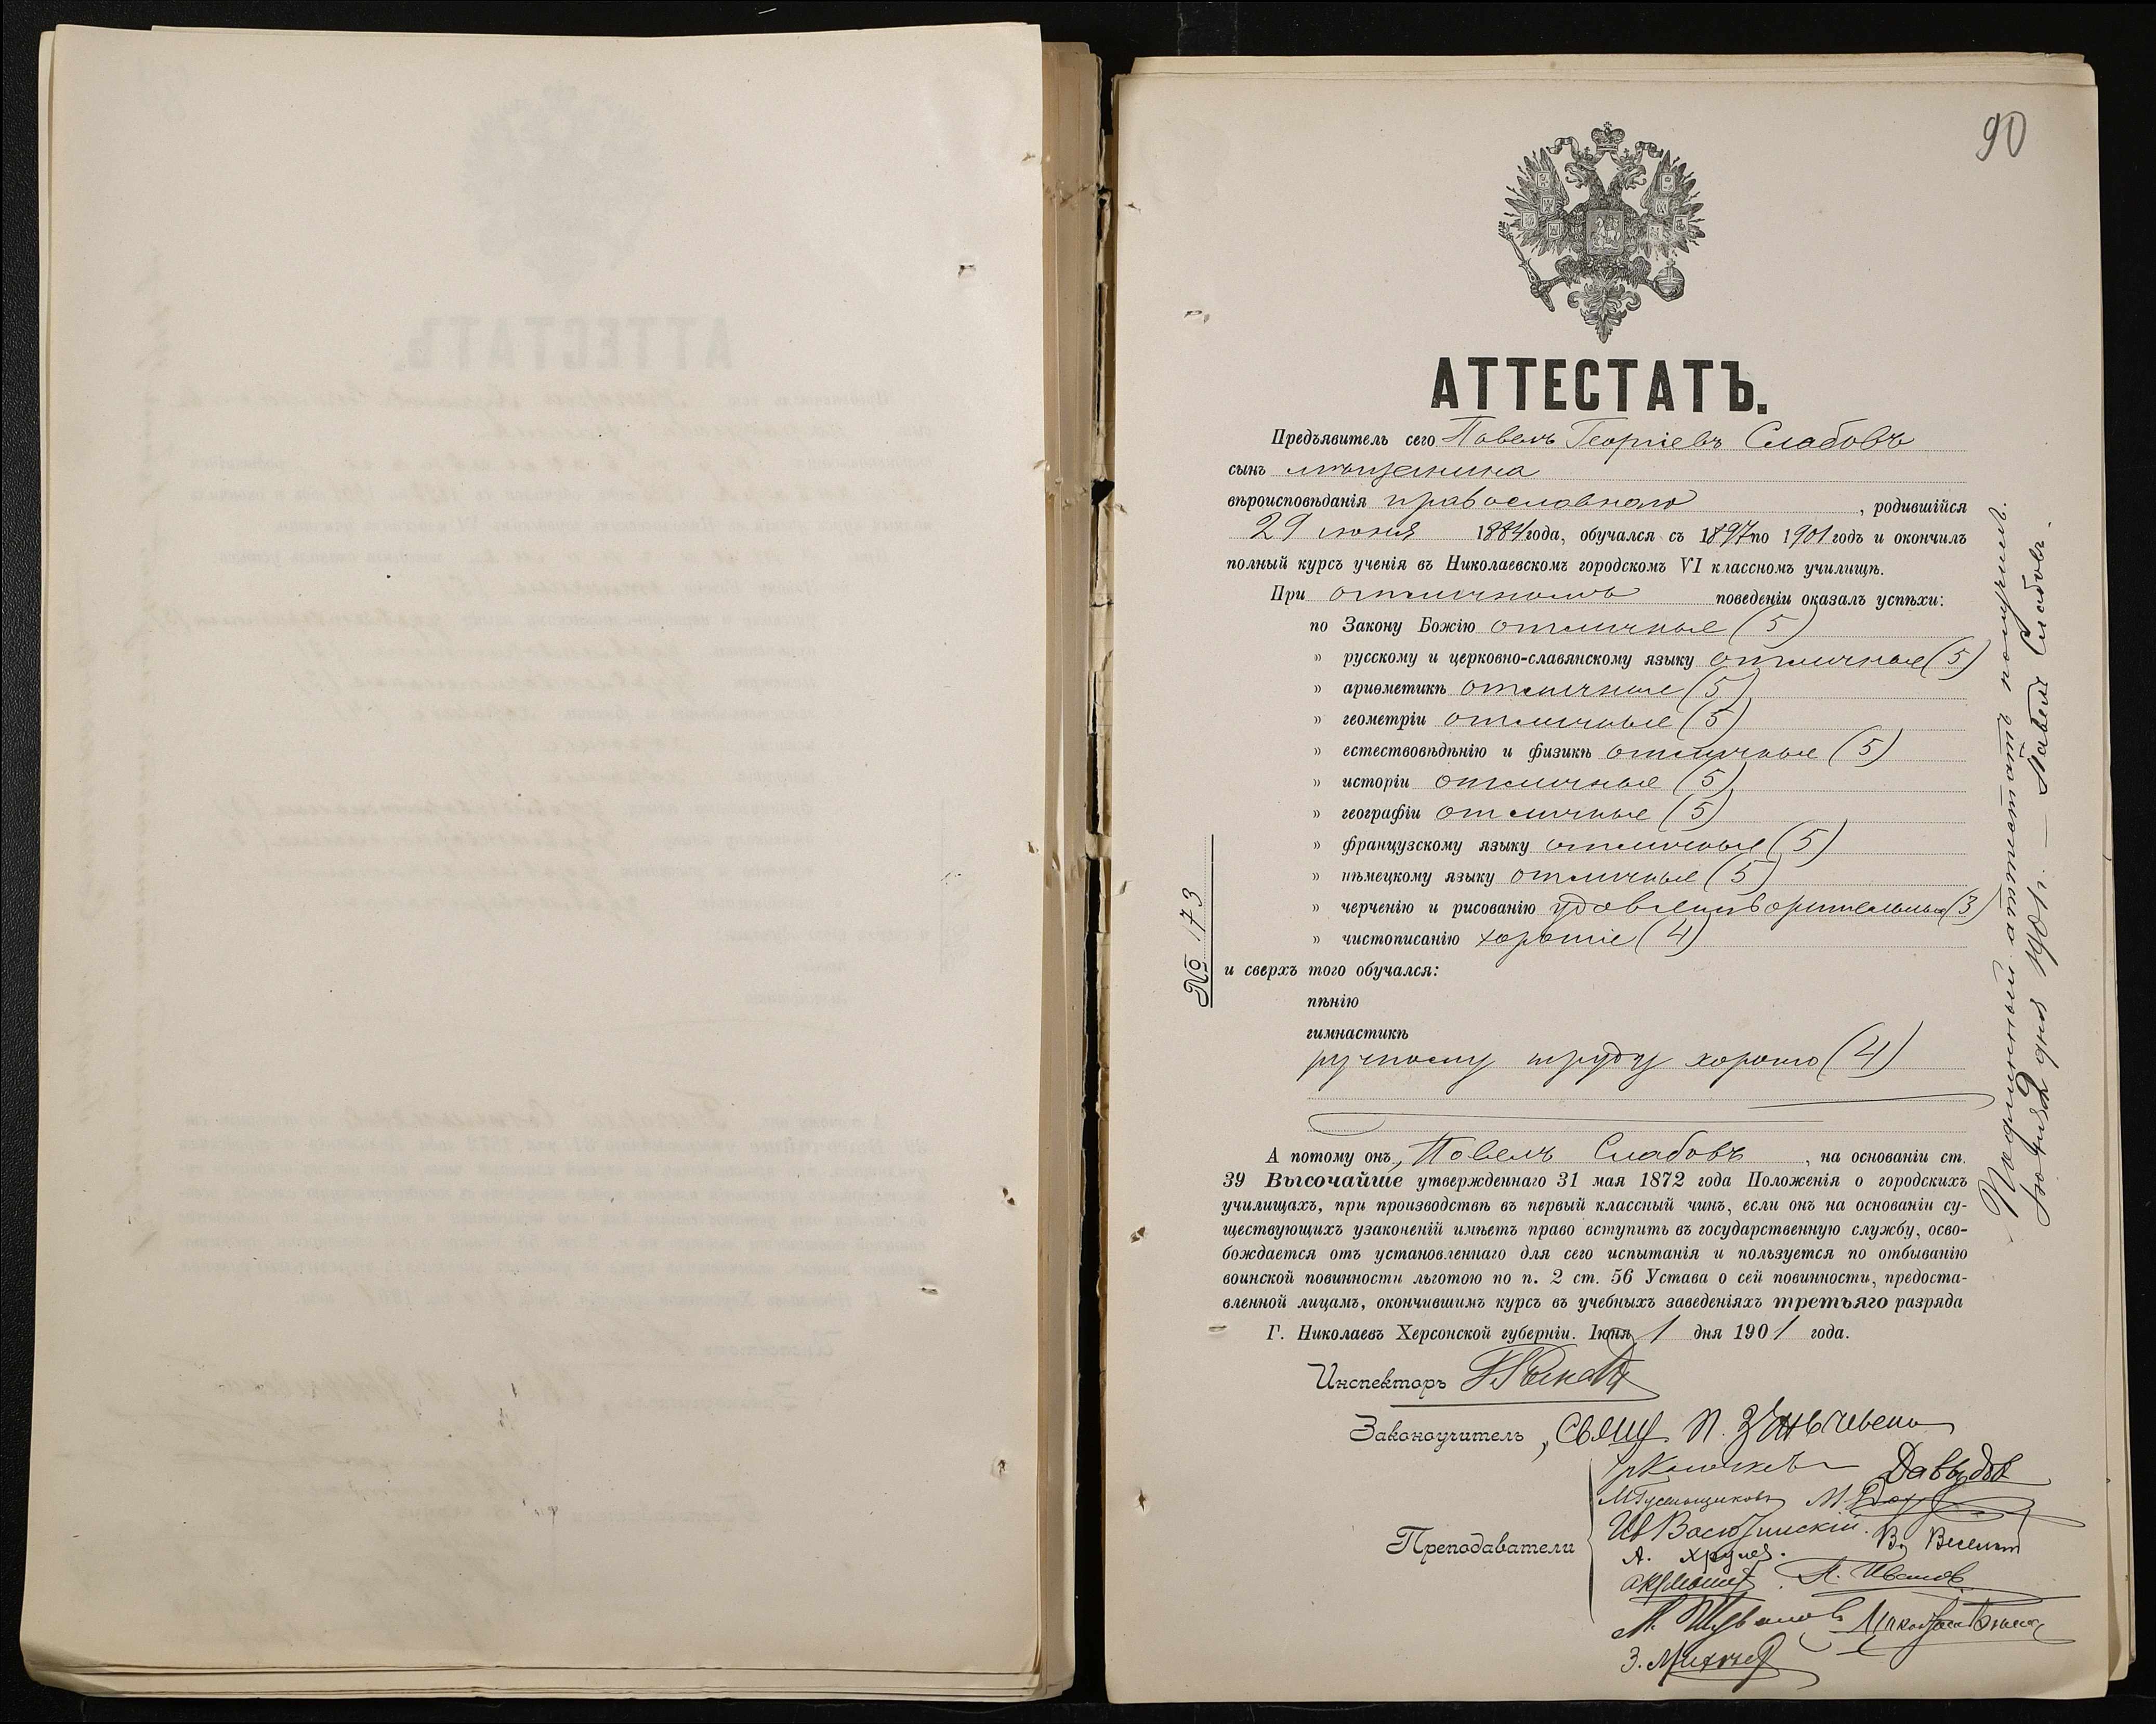 90
АТТЕСТАТЪ.
Предъявитель сего Павелъ Георгіевъ Слабовъ
сынъ мѣщанина
вѣроисповѣданія православнаго, родившійся
29 іюня 1884 года, обучался съ 1897 по 1901 годъ и окончилъ
полный курсъ ученія въ Николаевскомъ городскомъ VI классномъ училищѣ.
При отличномъ поведеніи оказалъ успѣхи:
по Закону Божію отличные (5)
» русскому и церковно-славянскому языку отличные (5)
» ариѳметикѣ отличные (5)
» геометріи отличные (5)
» естествовѣдѣнію и физикѣ отличные (5)
» исторіи отличные (5)
» географіи отличные (5)
» французскому языку отличные (5)
» нѣмецкому языку отличные (5)
» черченію и рисованію удовлетворительные (3)
» чистописанію хорошіе (4)
и сверхъ того обучался:
пѣнію
гимнастикѣ
ручному труду хорошо (4)
А потому онъ, Павелъ Слабовъ, на основаніи ст.
39 Высочайше утвержденнаго 31 мая 1872 года Положенія о городскихъ
училищахъ, при производствѣ въ первый классный чинъ, если онъ на основаніи су-
ществующихъ узаконеній имѣетъ право вступить въ государственную службу, осво-
бождается отъ установленнаго для сего испытанія и пользуется по отбыванію
воинской повинности льготою по п. 2 ст. 56 Устава о сей повинности, предоста-
вленной лицамъ, окончившимъ курсъ въ учебныхъ заведеніяхъ третьяго разряда
Г. Николаевъ Херсонской губерніи. Іюня 1 дня 1901 года.
Инспекторъ
Законоучитель, Свящ. П.
Преподаватели
Давыдов
М. Гусельщиковъ
Ив.
А. Хрулев.
В.
А. Иванов
М. Шуваловъ
З.
№ 173
Подлинный аттестатъ получилъ.
Іюня 2 дня 1901 г. — Павелъ Слабовъ.